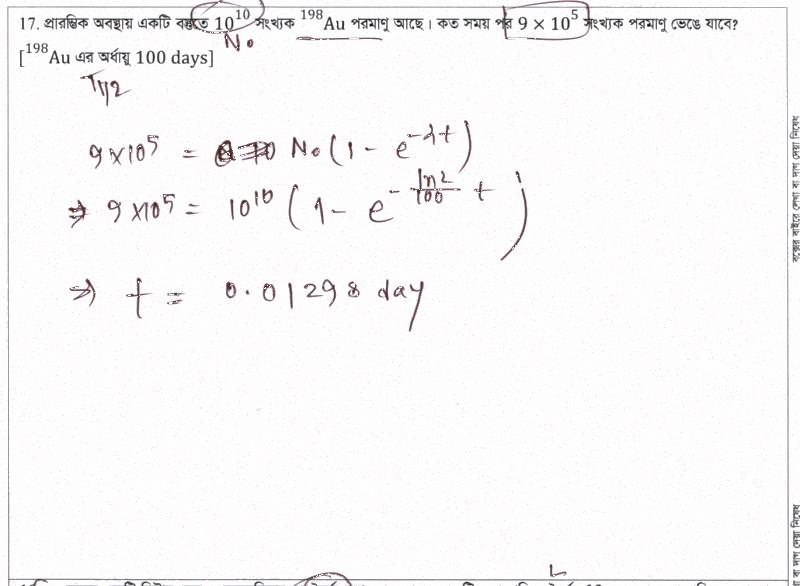 17. প্রারম্ভিক অবস্থায় একটি বস্তুতে 10¹⁰ সংখ্যক ¹⁹⁸Au পরমাণু আছে। কত সময় পর 9 × 10⁵ সংখ্যক পরমাণু ভেঙে যাবে?
N₀
[¹⁹⁸Au এর অর্ধায়ু 100 days]
T1/2
9×10⁵ = N₀(1 - e^-λt)
⇒ 9×10⁵ = 10¹⁰ (1 - e^-ln2/100 t)
⇒ t = 0.01298 day
বক্সের বাইরে লেখা বা দাগ দেয়া নিষেধ
বা দাগ দেয়া নিষেধ